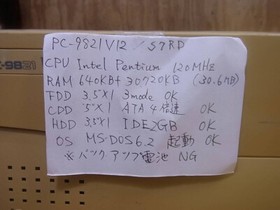 PC-9821V12 / S7RD
CPU Intel Pentium 120MHz
RAM 640KB+30720KB (30.6MB)
FDD 3.5×1 3mode OK
CDD 5×1 ATA 4倍速 OK
HDD 3.5×1 IDE2GB OK
OS MS-DOS6.2 起動 OK
※バックアップ電池 NG
-9821